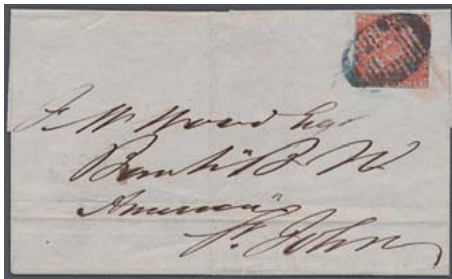 J W Wood Esqr
Bank "B. N
America"
St. John